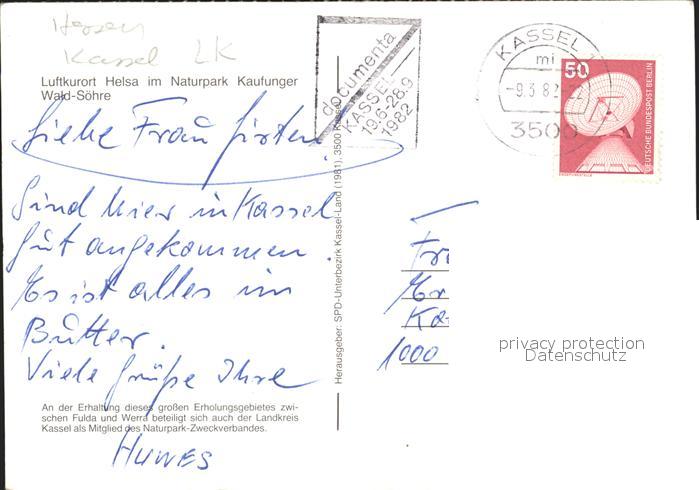 Hessen
Kassel LK
Luftkurort Helsa im Naturpark Kaufunger
Wald-Söhre
documenta
KASSEL
19.6-28.9
1982
KASSEL 1
mi
-9.3.82
3500
50
DEUTSCHE BUNDESPOST BERLIN
Liebe Frau
Sind hier in Kassel
gut angekommen.
Es ist alles im
Butter.
Viele Grüße Ihre
HUWES
An der Erhaltung dieses großen Erholungsgebietes zwi-
schen Fulda und Werra beteiligt sich auch der Landkreis
Kassel als Mitglied des Naturpark-Zweckverbandes.
Herausgeber: SPD-Unterbezirk Kassel-Land (1981), 3500 Kassel
1000
privacy protection
Datenschutz